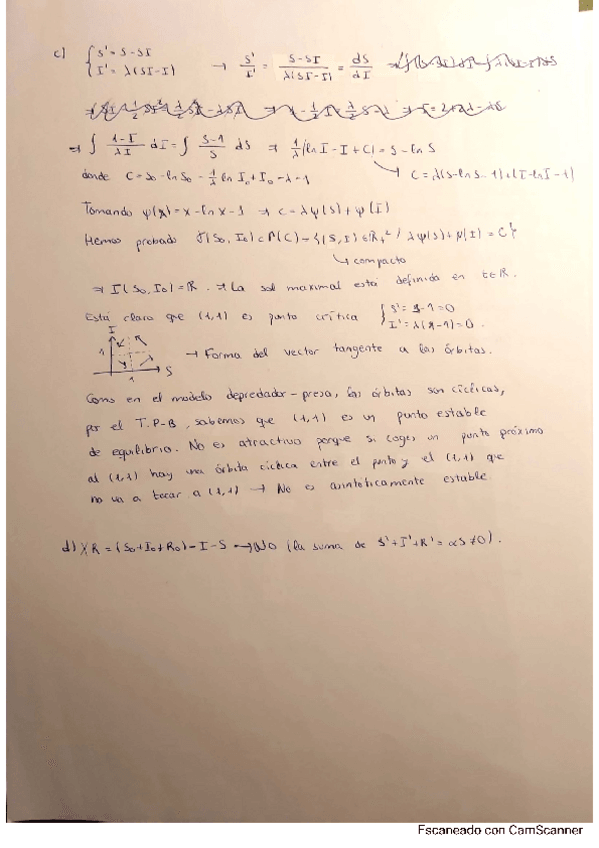 c) { S' = S - SI
I' = λ(SI - I) → S'/I' = (S - SI)/(λ(SI - I)) = dS/dI
⇒ ∫ (1-I)/(λI) dI = ∫ (S-1)/S dS ⇒ 1/λ (ln I - I + C) = S - ln S
donde C = S₀ - ln S₀ - 1/λ ln I₀ + I₀ - λ - 1 → C = λ(S - ln S - 1) + (I - ln I - 1)
Tomando ψ(x) = x - ln x - 1 ⇒ C = λψ(S) + ψ(I)
Hemos probado γ(S₀, I₀) ⊂ Γ(C) = {(S, I) ∈ R₊² / λψ(S) + ψ(I) = C}
↳ compacto
⇒ I(S₀, I₀) = R. ⇒ La sol maximal está definida en t ∈ R.
Está claro que (1,1) es punto crítica { S' = 1 - 1 = 0
I' = λ(1 - 1) = 0.
I
1 → Forma del vector tangente a las órbitas.
S
1
Como en el modelo depredador - presa, las órbitas son cíclicas,
por el T. P-B, sabemos que (1,1) es un punto estable
de equilibrio. No es atractivo porque si coges un punto próximo
al (1,1) hay una órbita cíclica entre el punto y el (1,1) que
no va a tocar a (1,1) → No es asintóticamente estable
d) R = (S₀ + I₀ + R₀) - I - S → NO (la suma de S' + I' + R' = αS ≠ 0).
Escaneado con CamScanner